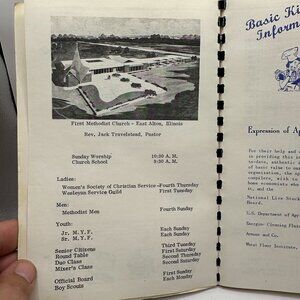 First Methodist Church - East Alton, Illinois
Rev. Jack Travelstead, Pastor
Sunday Worship 10:30 A.M.
Church School 9:30 A.M.
Ladies:
Women's Society of Christian Service-Fourth Thursday
Wesleyan Service Guild First Tuesday
Men:
Methodist Men Fourth Sunday
Youth:
Jr. M.Y.F. Each Sunday
Sr. M.Y.F. Each Sunday
Senior Citizens Third Tuesday
Round Table First Saturday
Duo Class Second Thursday
Mixer's Class Second Saturday
Official Board First Monday
Boy Scouts Each Monday
Basic Ki
Inform
Expression of Ap
For their help and c
in providing this i
we are today
of basic value to
organization, the ag
compilers, wish to
home economists wh
it, and the
National Live Stock
Board
U.S. Department of Agr
Armour and Co.
Wheat Flour Institute